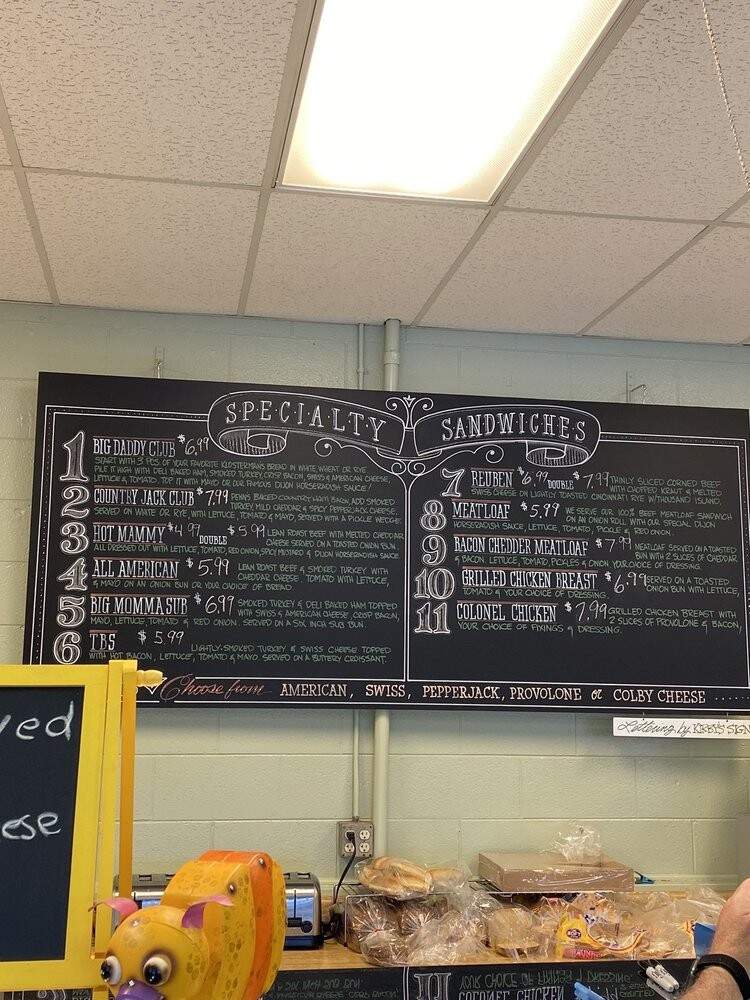 SPECIALTY SANDWICHES
1 BIG DADDY CLUB $6.99
START WITH 3 PCS OF YOUR FAVORITE KLOSTERMANS BREAD IN WHITE, WHEAT OR RYE
PILE IT HIGH WITH DELI BAKED HAM, SMOKED TURKEY, CRISP BACON, SWISS & AMERICAN CHEESE,
LETTUCE & TOMATO. TOP IT WITH MAYO OR OUR FAMOUS DIJON HORSERADISH SAUCE!
2 COUNTRY JACK CLUB $7.99 PENN'S BAKED COUNTRY HAM, BACON, ADD SMOKED
TURKEY, MILD CHEDDAR & SPICY PEPPERJACK CHEESE,
SERVED ON WHITE OR RYE, WITH LETTUCE, TOMATO & MAYO, SERVED WITH A PICKLE WEDGE.
3 HOT MAMMY $4.99 DOUBLE $5.99 LEAN ROAST BEEF WITH MELTED CHEDDAR
CHEESE SERVED ON A TOASTED ONION BUN.
ALL DRESSED OUT WITH LETTUCE, TOMATO, RED ONION, SPICY MUSTARD & DIJON HORSERADISH SAUCE
4 ALL AMERICAN $5.99 LEAN ROAST BEEF & SMOKED TURKEY WITH
CHEDDAR CHEESE TOMATO WITH LETTUCE,
& MAYO ON AN ONION BUN OR YOUR CHOICE OF BREAD.
5 BIG MOMMA SUB $6.99 SMOKED TURKEY & DELI BAKED HAM TOPPED
WITH SWISS & AMERICAN CHEESE, CRISP BACON,
MAYO, LETTUCE, TOMATO & RED ONION. SERVED ON A SIX INCH SUB BUN
6 TBS $5.99 LIGHTLY-SMOKED TURKEY & SWISS CHEESE TOPPED
WITH HOT BACON, LETTUCE, TOMATO & MAYO. SERVED ON A BUTTERY CROISSANT.
7 REUBEN $6.99 DOUBLE $7.99 THINLY SLICED CORNED BEEF
WITH CHOPPED KRAUT & MELTED
SWISS CHEESE ON LIGHTLY TOASTED CINCINNATI RYE W/THOUSAND ISLAND
8 MEATLOAF $5.99 WE SERVE OUR 100% BEEF MEATLOAF SANDWICH
ON AN ONION ROLL WITH OUR SPECIAL DIJON
HORSERADISH SAUCE, LETTUCE, TOMATO, PICKLE & RED ONION.
9 BACON CHEDDER MEATLOAF $7.99 MEATLOAF SERVED ON A TOASTED
BUN WITH 2 SLICES OF CHEDDAR
& BACON. LETTUCE, TOMATO, PICKLES & ONION. YOUR CHOICE OF DRESSING.
10 GRILLED CHICKEN BREAST $6.99 SERVED ON A TOASTED
ONION BUN WITH LETTUCE,
TOMATO & YOUR CHOICE OF DRESSING.
11 COLONEL CHICKEN $7.99 GRILLED CHICKEN BREAST WITH
2 SLICES OF PROVOLONE & BACON,
YOUR CHOICE OF FIXINGS & DRESSING.
Choose from AMERICAN, SWISS, PEPPERJACK, PROVOLONE or COLBY CHEESE
Lettering by KIRBY'S SIGN
ved
ese